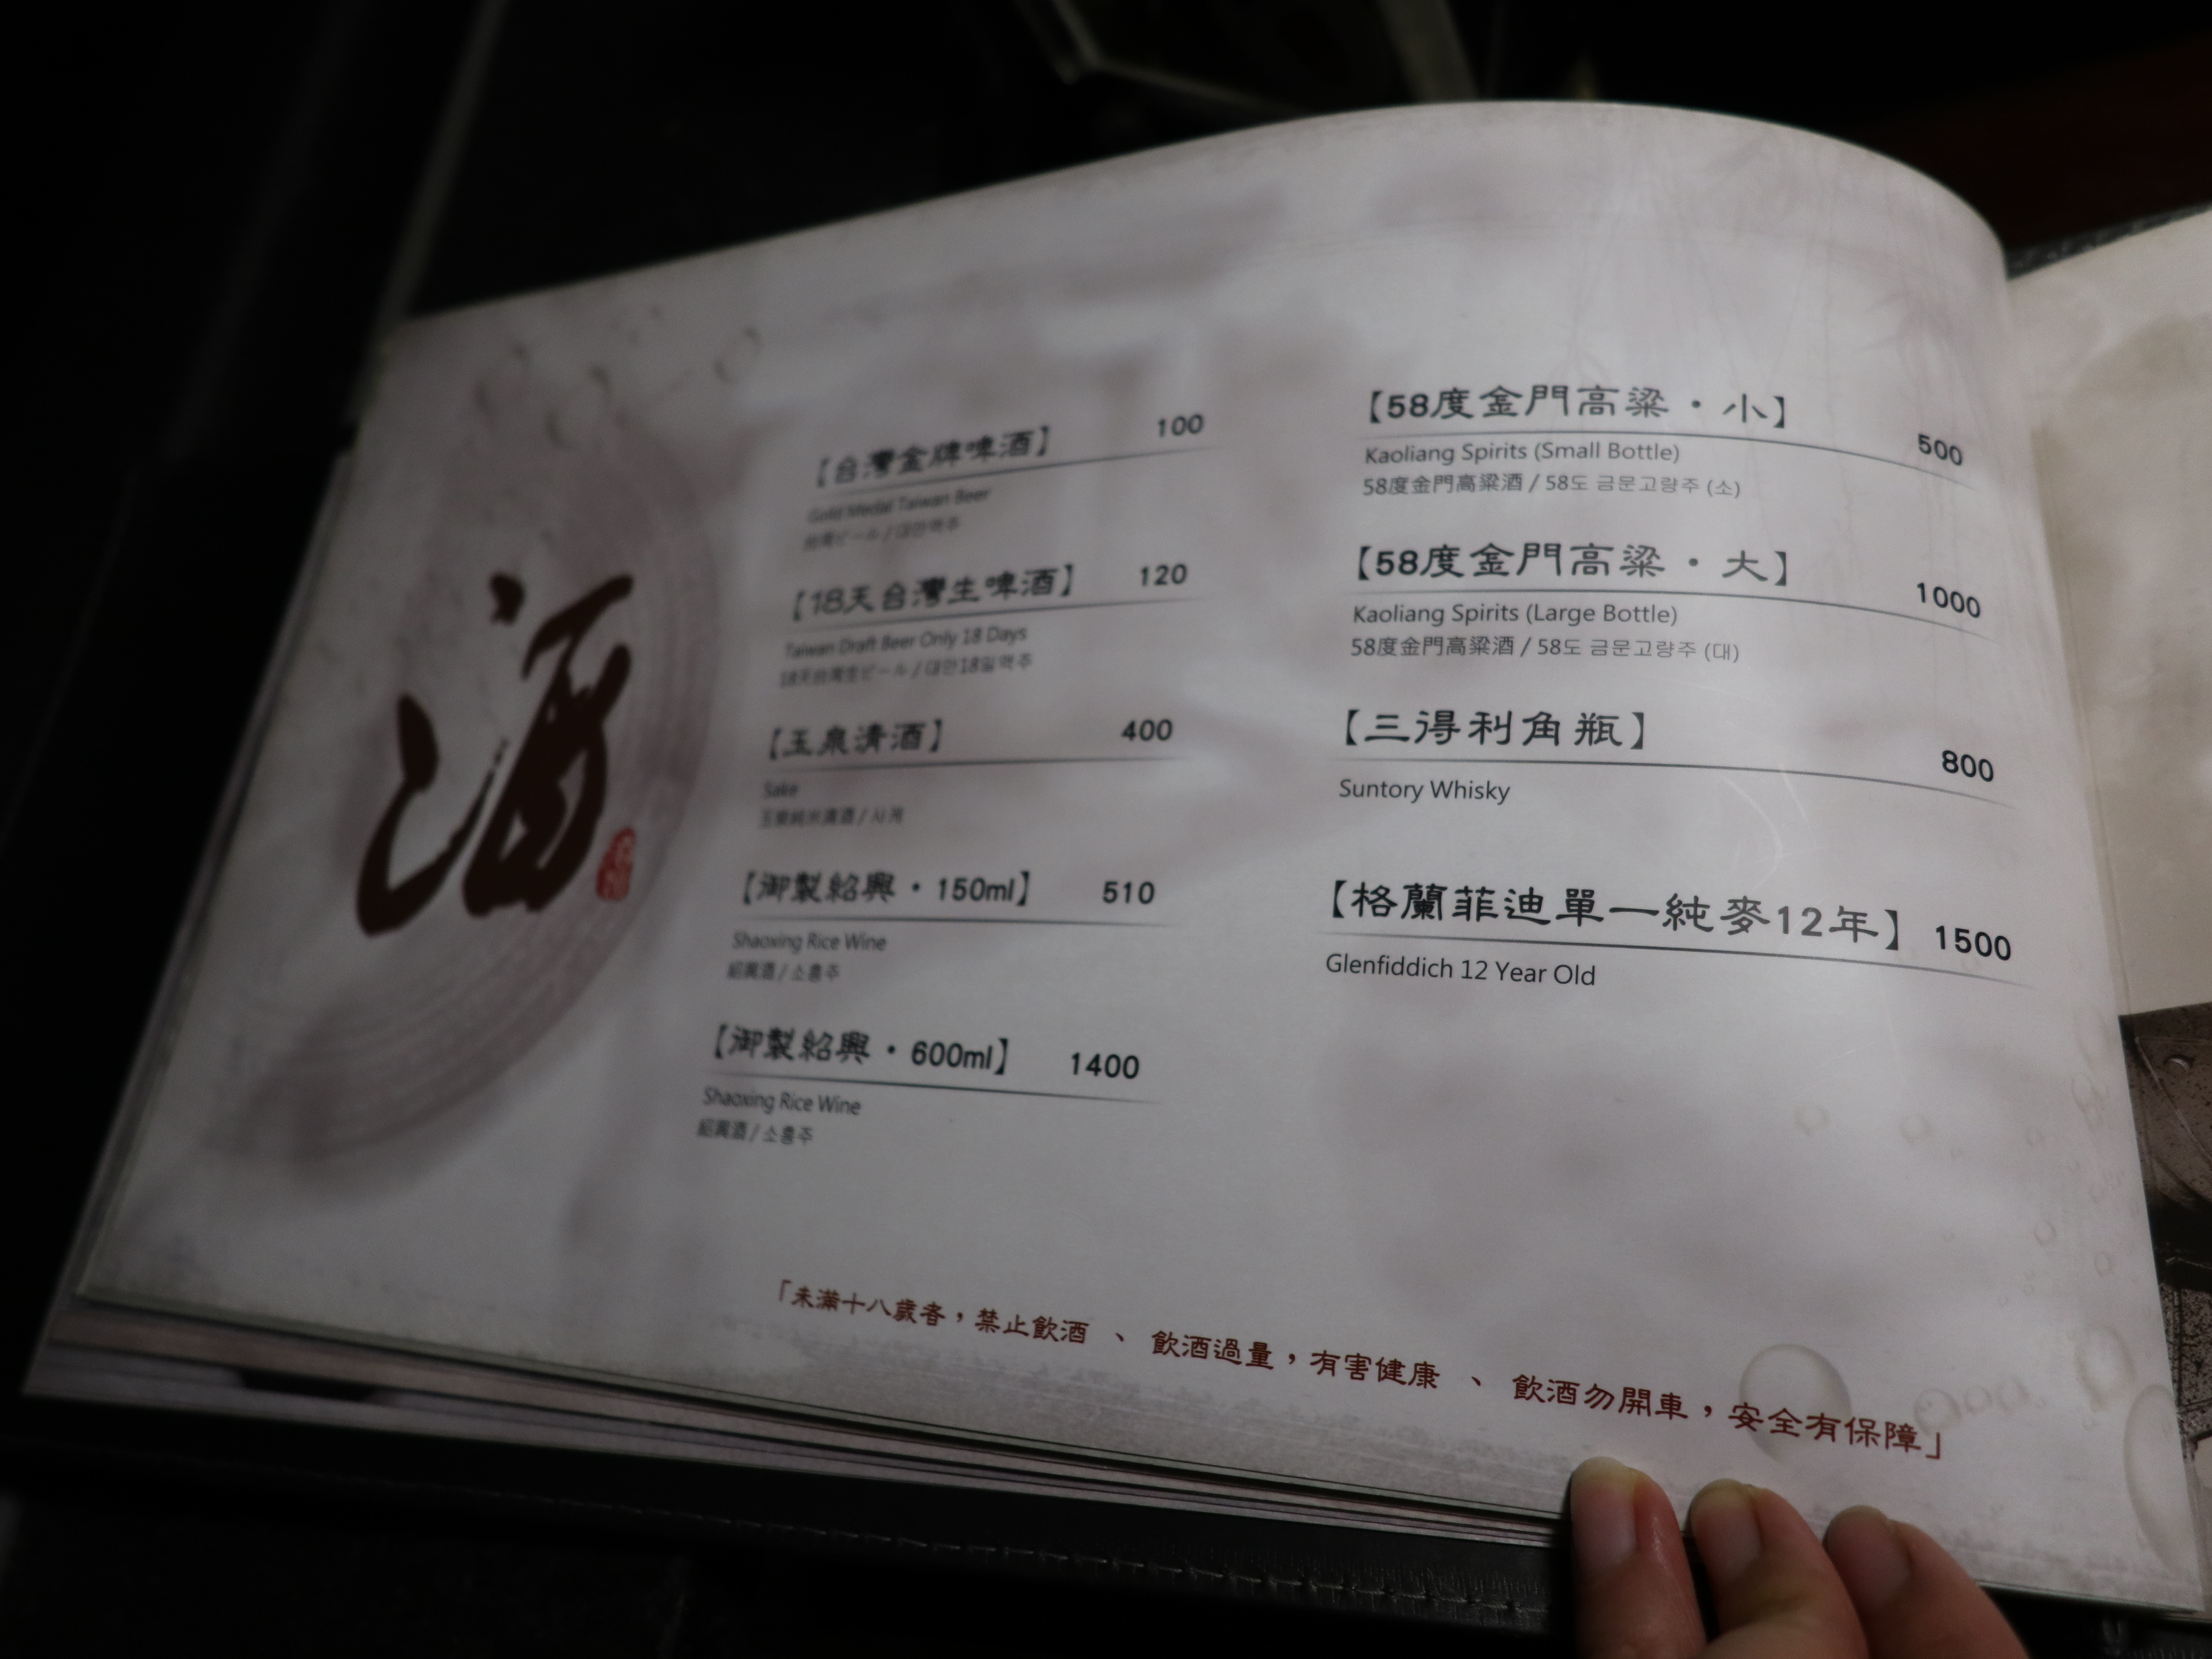 酒
【台灣金牌啤酒】 100
Gold Medal Taiwan Beer
台灣ビール / 대만맥주
【18天台灣生啤酒】 120
Taiwan Draft Beer Only 18 Days
18天台灣生ビール / 대만18일맥주
【玉泉清酒】 400
Sake
玉泉純米清酒 / 사케
【御製紹興・150ml】 510
Shaoxing Rice Wine
紹興酒 / 소흥주
【御製紹興・600ml】 1400
Shaoxing Rice Wine
紹興酒 / 소흥주
【58度金門高粱・小】 500
Kaoliang Spirits (Small Bottle)
58度金門高粱酒 / 58도 금문고량주 (소)
【58度金門高粱・大】 1000
Kaoliang Spirits (Large Bottle)
58度金門高粱酒 / 58도 금문고량주 (대)
【三得利角瓶】 800
Suntory Whisky
【格蘭菲迪單一純麥12年】 1500
Glenfiddich 12 Year Old
「未滿十八歲者，禁止飲酒 、 飲酒過量，有害健康 、 飲酒勿開車，安全有保障」